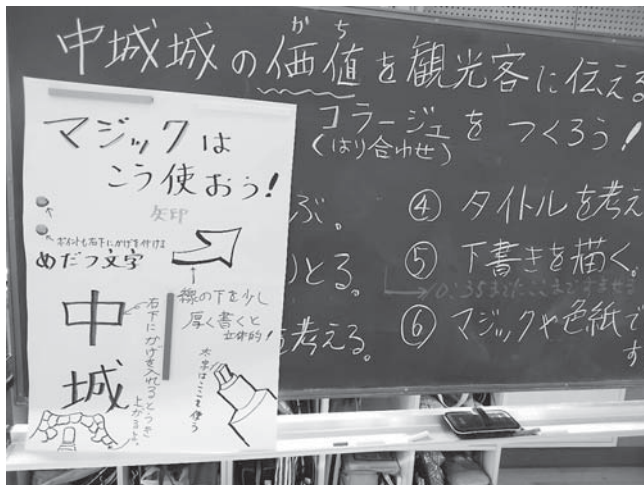 がち
中城城の価値を観光客に伝える
コラージュをつくろう!
(はり合わせ)
ぶ。
とる。
を考える。
④ タイトルを考え
⑤ 下書きを描く。
⑥ マジックや色紙で
す
マジックは
こう使おう!
矢印
ポイントも右下にかげを付ける
めだつ文字
線の下を少し
厚く書くと
立体的!
中
城
右下にかげを入れるとうき
上がるよ。
太字はここを使う